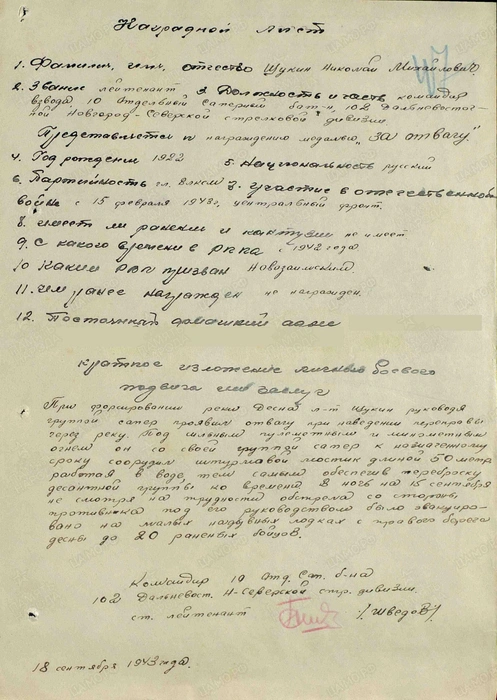 Наградной лист
1. Фамилия, имя, отчество Щукин Николай Михайлович
2. Звание лейтенант 3. Должность и часть командир
взвода 10 отдельный саперный бат-н, 102 Дальневосточ-
ной Новгород-Северской стрелковой дивизии
Представляется к награждению медалью „За отвагу"
4. Год рождения 1922 5. Национальность русский
6. Партийность чл. ВЛКСМ 7. участие в отечественной
войне с 15 февраля 1943г, центральный фронт.
8. имеет ли ранения и контузии не имеет
9. С какого времени в РККА с 1942 года
10 Каким РВК призван Новозаимский.
11. чем ранее награжден не награжден.
12. Постоянный домашний адрес
краткое изложение личного боевого
подвига или заслуг
При форсировании реки Десна л-т Щукин руководя
группой сапер проявил отвагу при наведении переправы
через реку. Под сильным пулеметным и минометным
огнем он со своей группой сапер к назначенному
сроку соорудил штурмовой мостик длиной 50 метр
работая в воде тем самым обеспечив переброску
десантной группы ко времени. В ночь на 15 сентября
не смотря на трудности обстрела со стороны
противника под его руководством было эвакуиро-
вано на малых надувных лодках с правого берега
десны до 20 раненых бойцов.
Командир 10 Отд. Сап. б-на
102 Дальневост. Н-Северской стр. дивизии.
ст. лейтенант /Шведов/
18 сентября 1943 года.